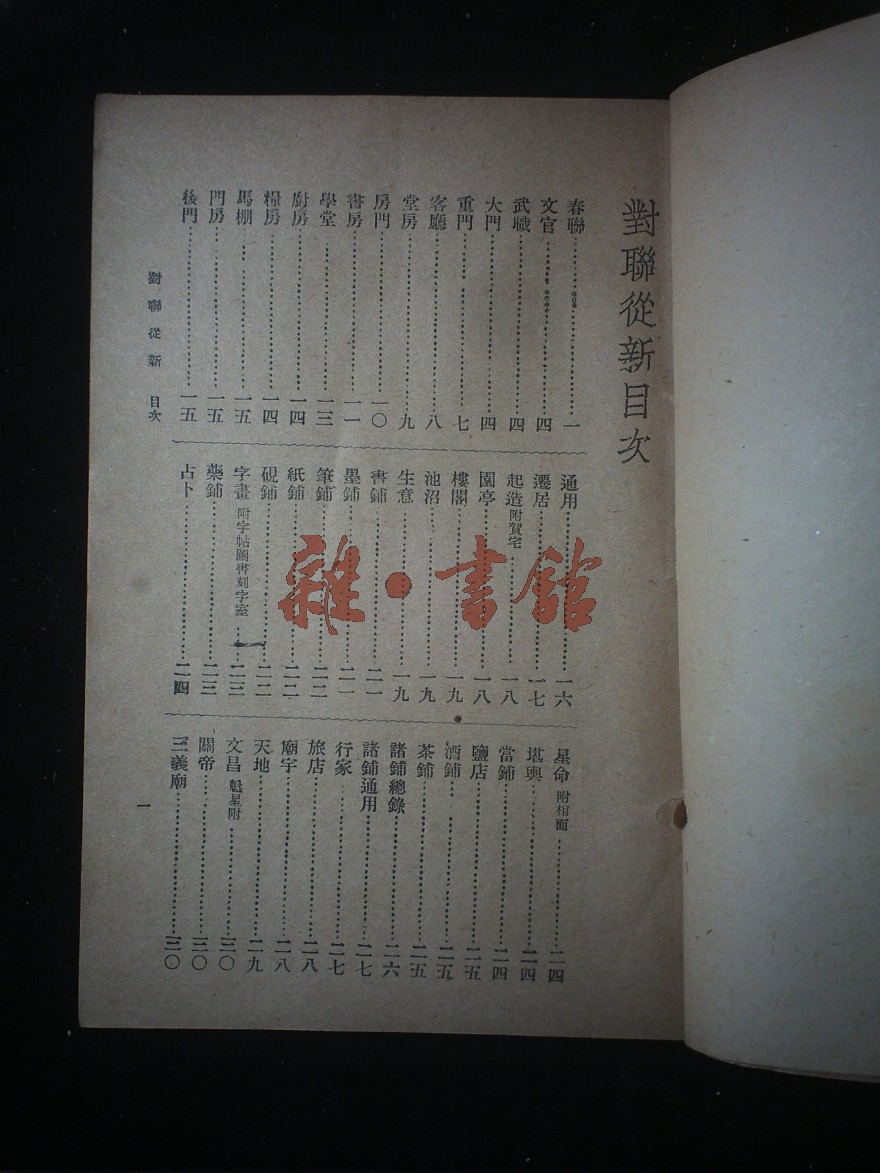 對聯從新目次
春聯……一
文官……四
武職……四
大門……四
重門……七
客廳……八
堂房……九
房門……一〇
書房……一一
學堂……一三
廚房……一四
糧房……一四
馬棚……一五
門房……一五
後門……一五
通用……一六
遷居……一七
起造附賀宅……一八
園亭……一八
樓閣……一九
池沼……一九
生意……一九
書鋪……二一
墨鋪……二一
筆鋪……二二
紙鋪……二二
硯鋪……二二
字畫附字帖圖書刻字室……二三
藥鋪……二三
占卜……二四
星命附相面……二四
堪輿……二四
當鋪……二四
鹽店……二五
酒鋪……二五
茶鋪……二五
諸鋪總錄……二六
諸鋪通用……二七
行家……二七
旅店……二八
廟宇……二八
天地……二九
文昌魁星附……三〇
關帝……三〇
三義廟……三〇
對聯從新 目次
一
雜·書館